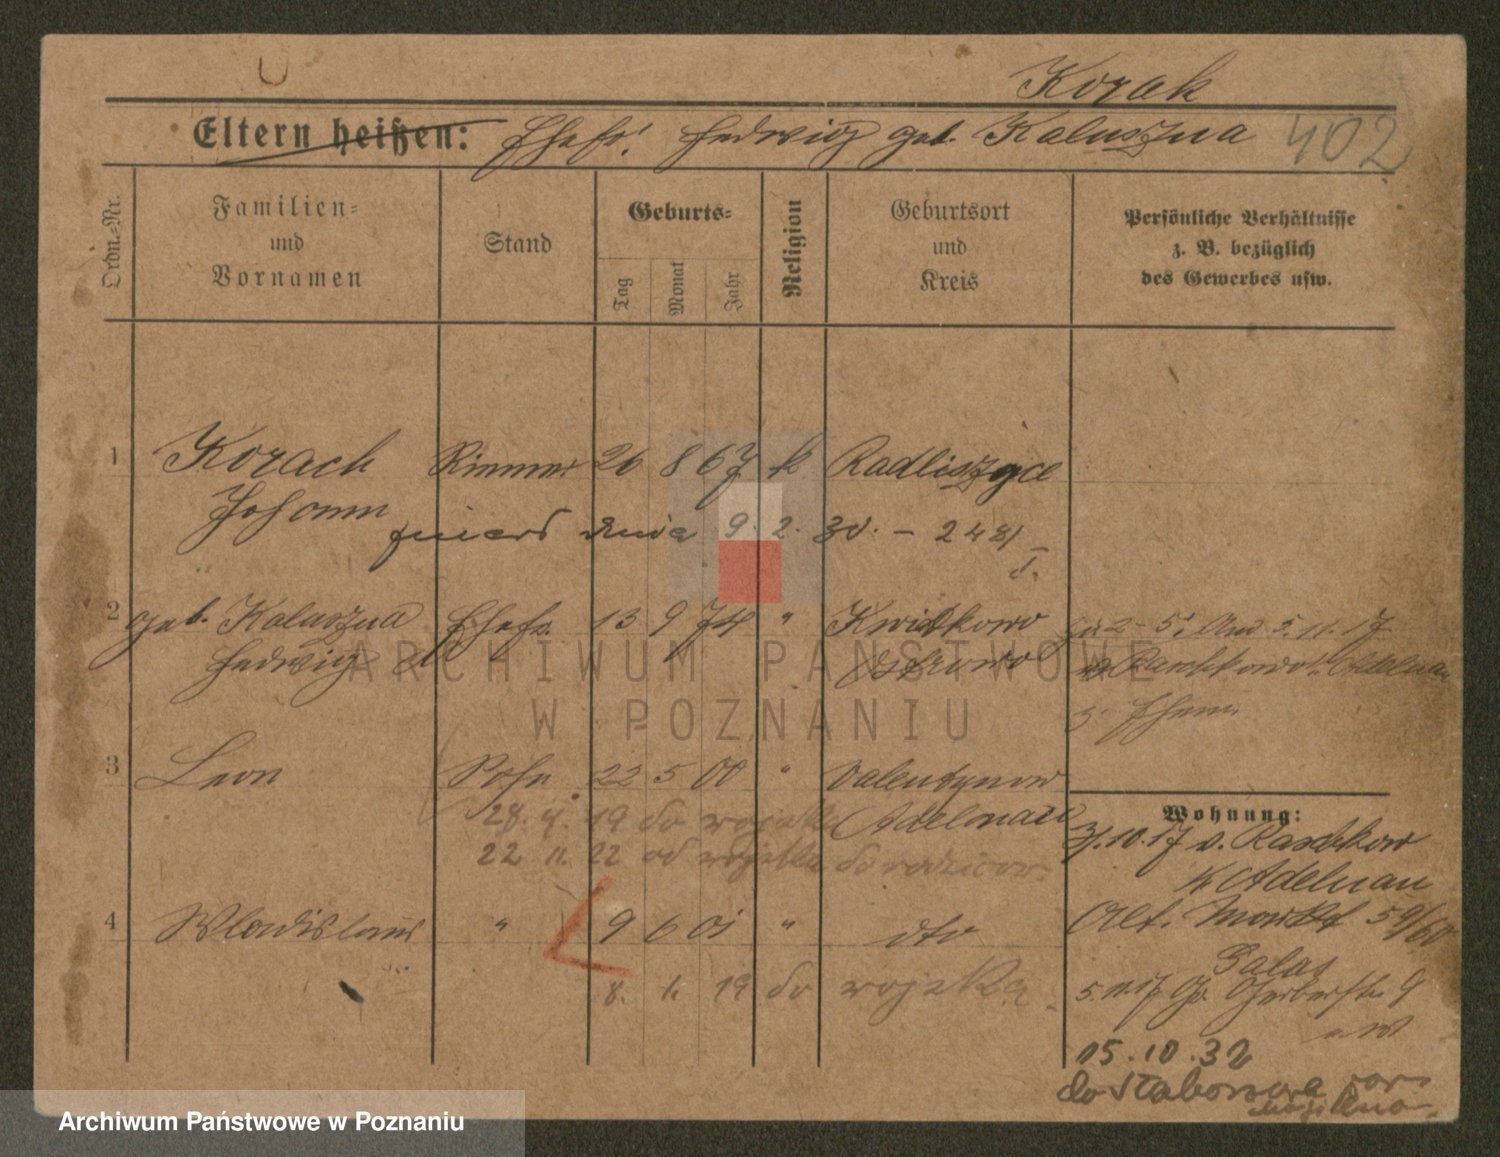 Korak
Eltern heißen: Ehefr. Hedwig geb. Kaluszna 402
Ordn.-Nr.
Familien-
und
Vornamen
Stand
Geburts-
Tag
Monat
Jahr
Religion
Geburtsort
und
Kreis
Persönliche Verhältnisse
z. B. bezüglich
des Gewerbes usw.
1 Korach 26 8 67 k Radliszyce
Johann
zmarł dnia 9. 2. 30. – 248/
2 geb. Kaluszna Ehefr. 13 9 74 " Kwiatkowo
Hedwig Ostrowo
zu 2–5: And 5.11.17
z. Ehem.
3 Leon Sohn 22 5 00 " Valentynow
28. 4. 19 do wojska Adelnau
22 11 22 od wojska do rodziców
4 Wladislaus " 9 6 01 " dto
8. 1. 19 do wojska
Wohnung:
31.10.17 v. Raschkow
Kr Adelnau
Alt. Markt 59/60
Galas
5.11.17 Gr. Gerberstr. 9
15.10.32
do
ARCHIWUM PAŃSTWOWE
W POZNANIU
Archiwum Państwowe w Poznaniu